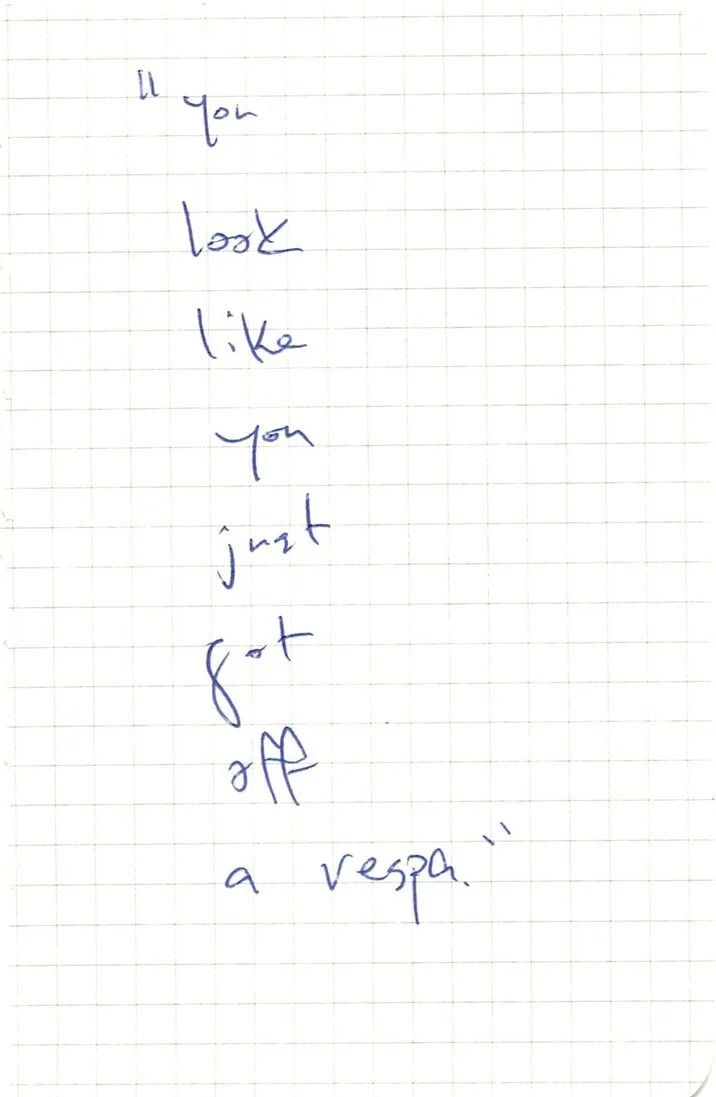 "you
look
like
you
just
got
off
a vespa."